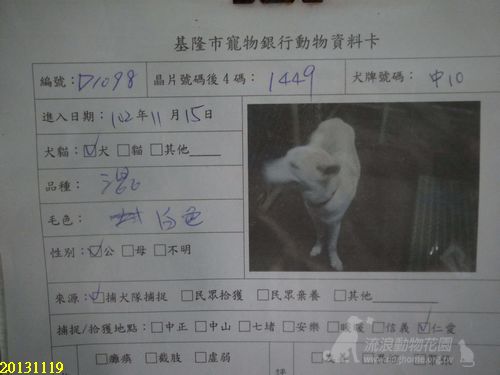 基隆市寵物銀行動物資料卡
編號：D1098 晶片號碼後4碼：1449 犬牌號碼：中10
進入日期：102年11月15日
犬貓：☑犬 □貓 □其他
品種：混
毛色：白色
性別：☑公 □母 □不明
來源：☑捕犬隊捕捉 □民眾拾獲 □民眾棄養 □其他
捕捉/拾獲地點：□中正 □中山 □七堵 □安樂 □暖暖 □信義 ☑仁愛
□癱瘓 □截肢 □虛弱
流浪動物花園
20131119